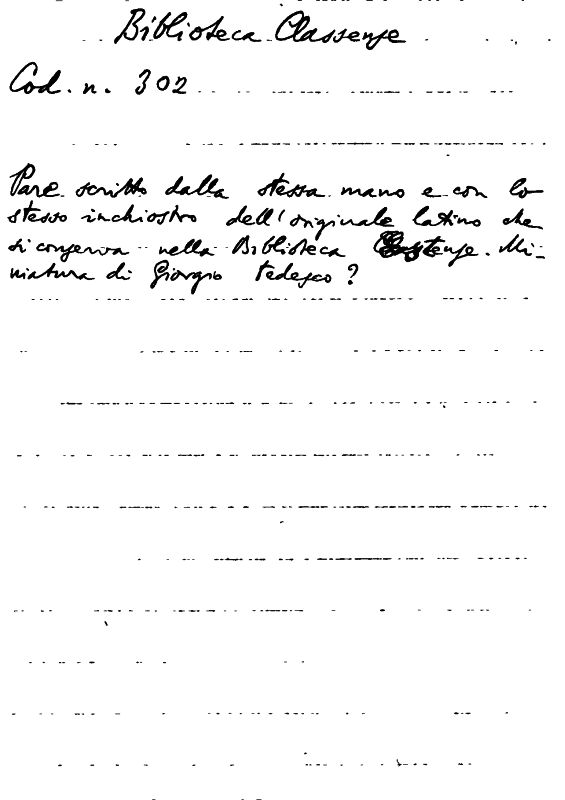 Biblioteca Classense
Cod. n. 302
Pare scritto dalla stessa mano e con lo
stesso inchiostro dell'originale latino che
si conserva nella Biblioteca Estense. Mi-
niatura di Giorgio Tedesco?